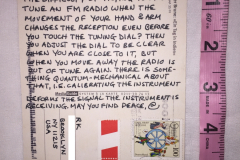 TUNE AN FM RADIO WHEN THE
MOVEMENT OF YOUR HAND & ARM
CHANGES THE RECEPTION EVEN BEFORE
YOU TOUCH THE TUNING DIAL? THEN
YOU ADJUST THE DIAL TO BE CLEAR
WHEN YOU ARE CLOSE TO IT, BUT
WHEN YOU MOVE AWAY THE RADIO IS
OUT OF TUNE AGAIN. THERE IS SOME-
THING QUANTUM-MECHANICAL ABOUT
THAT, I.E. CALIBRATING THE INSTRUMENT
DEFORMS THE SIGNAL THE INSTRUMENT IS
RECEIVING. MAY YOU FIND PEACE,
BROOKLYN
NY 11215
USA